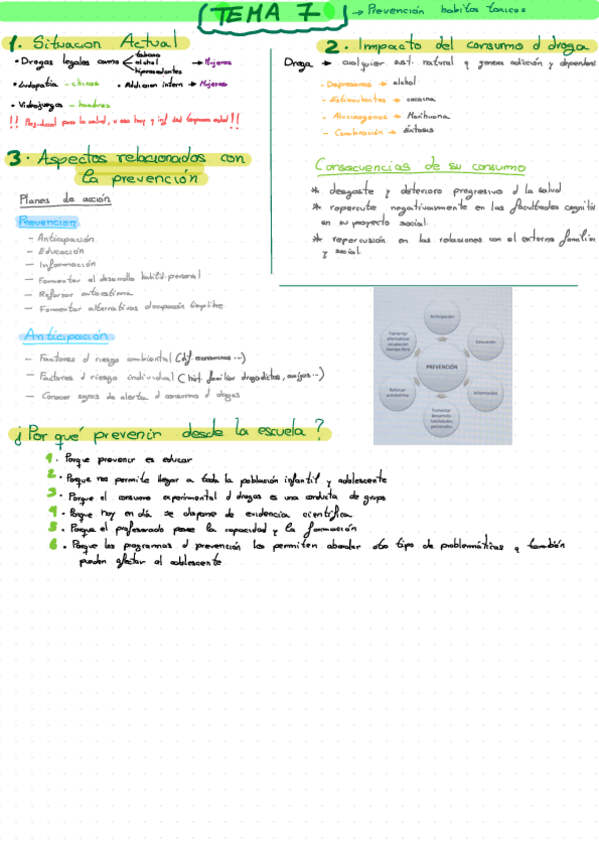 TEMA 7 → Prevención habitos toxicos
1. Situacion Actual
• Drogas legales como
tabaco
alcohol
hipnosedantes
→ Mujeres
• Ludopatia - chicos
• Adiccion intern → Mujeres
• Videojuegos - hombres
!! Perjudicial para la salud, !!
2. Impacto del consumo d droga
Droga → cualquier sust. natural q genera adicción y dependenci
- Depresoras → alcohol
- Estimulantes → cocaina
- Alucinogenos → Marihuana
- Combinación → Extasis
Consecuencias de su consumo
* desgaste y deterioro progresivo d la salud
* repercute negativamente en las facultades cognitiv
en su proyecto social
* repercusión en las relaciones con el entorno familiar
y social.
3. Aspectos relacionados con
la prevención
Planes de acción
Prevencion
- Anticipación
- Educación
- Información
- Fomentar el desarrollo habilid. personal
- Reforzar autoestima
- Fomentar alternativas d ocupación tiemp libre
Anticipación
- Factores d riesgo ambiental (dif economicas ...)
- Factores d riesgo individual (hist. familiar drogadictos, amigos ...)
- Conocer signos de alerta d consumo d drogas
Anticipación
Educación
Información
Fomentar
desarrollo
habilidades
personales
Reforzar
autoestima
Fomentar
alternativas
ocupación
tiempo libre
PREVENCIÓN
¿Por qué prevenir desde la escuela?
1. Porque prevenir es educar
2. Porque nos permite llegar a toda la población infantil y adolescente
3. Porque el consumo experimental d drogas es una conducta de grupo
4. Porque hoy en día se dispone de evidencia científica
5. Porque el profesorado posee la capacidad y la formación
6. Porque los programas d prevención les permiten abordar otro tipo de problemáticas q también
pueden afectar al adolescente